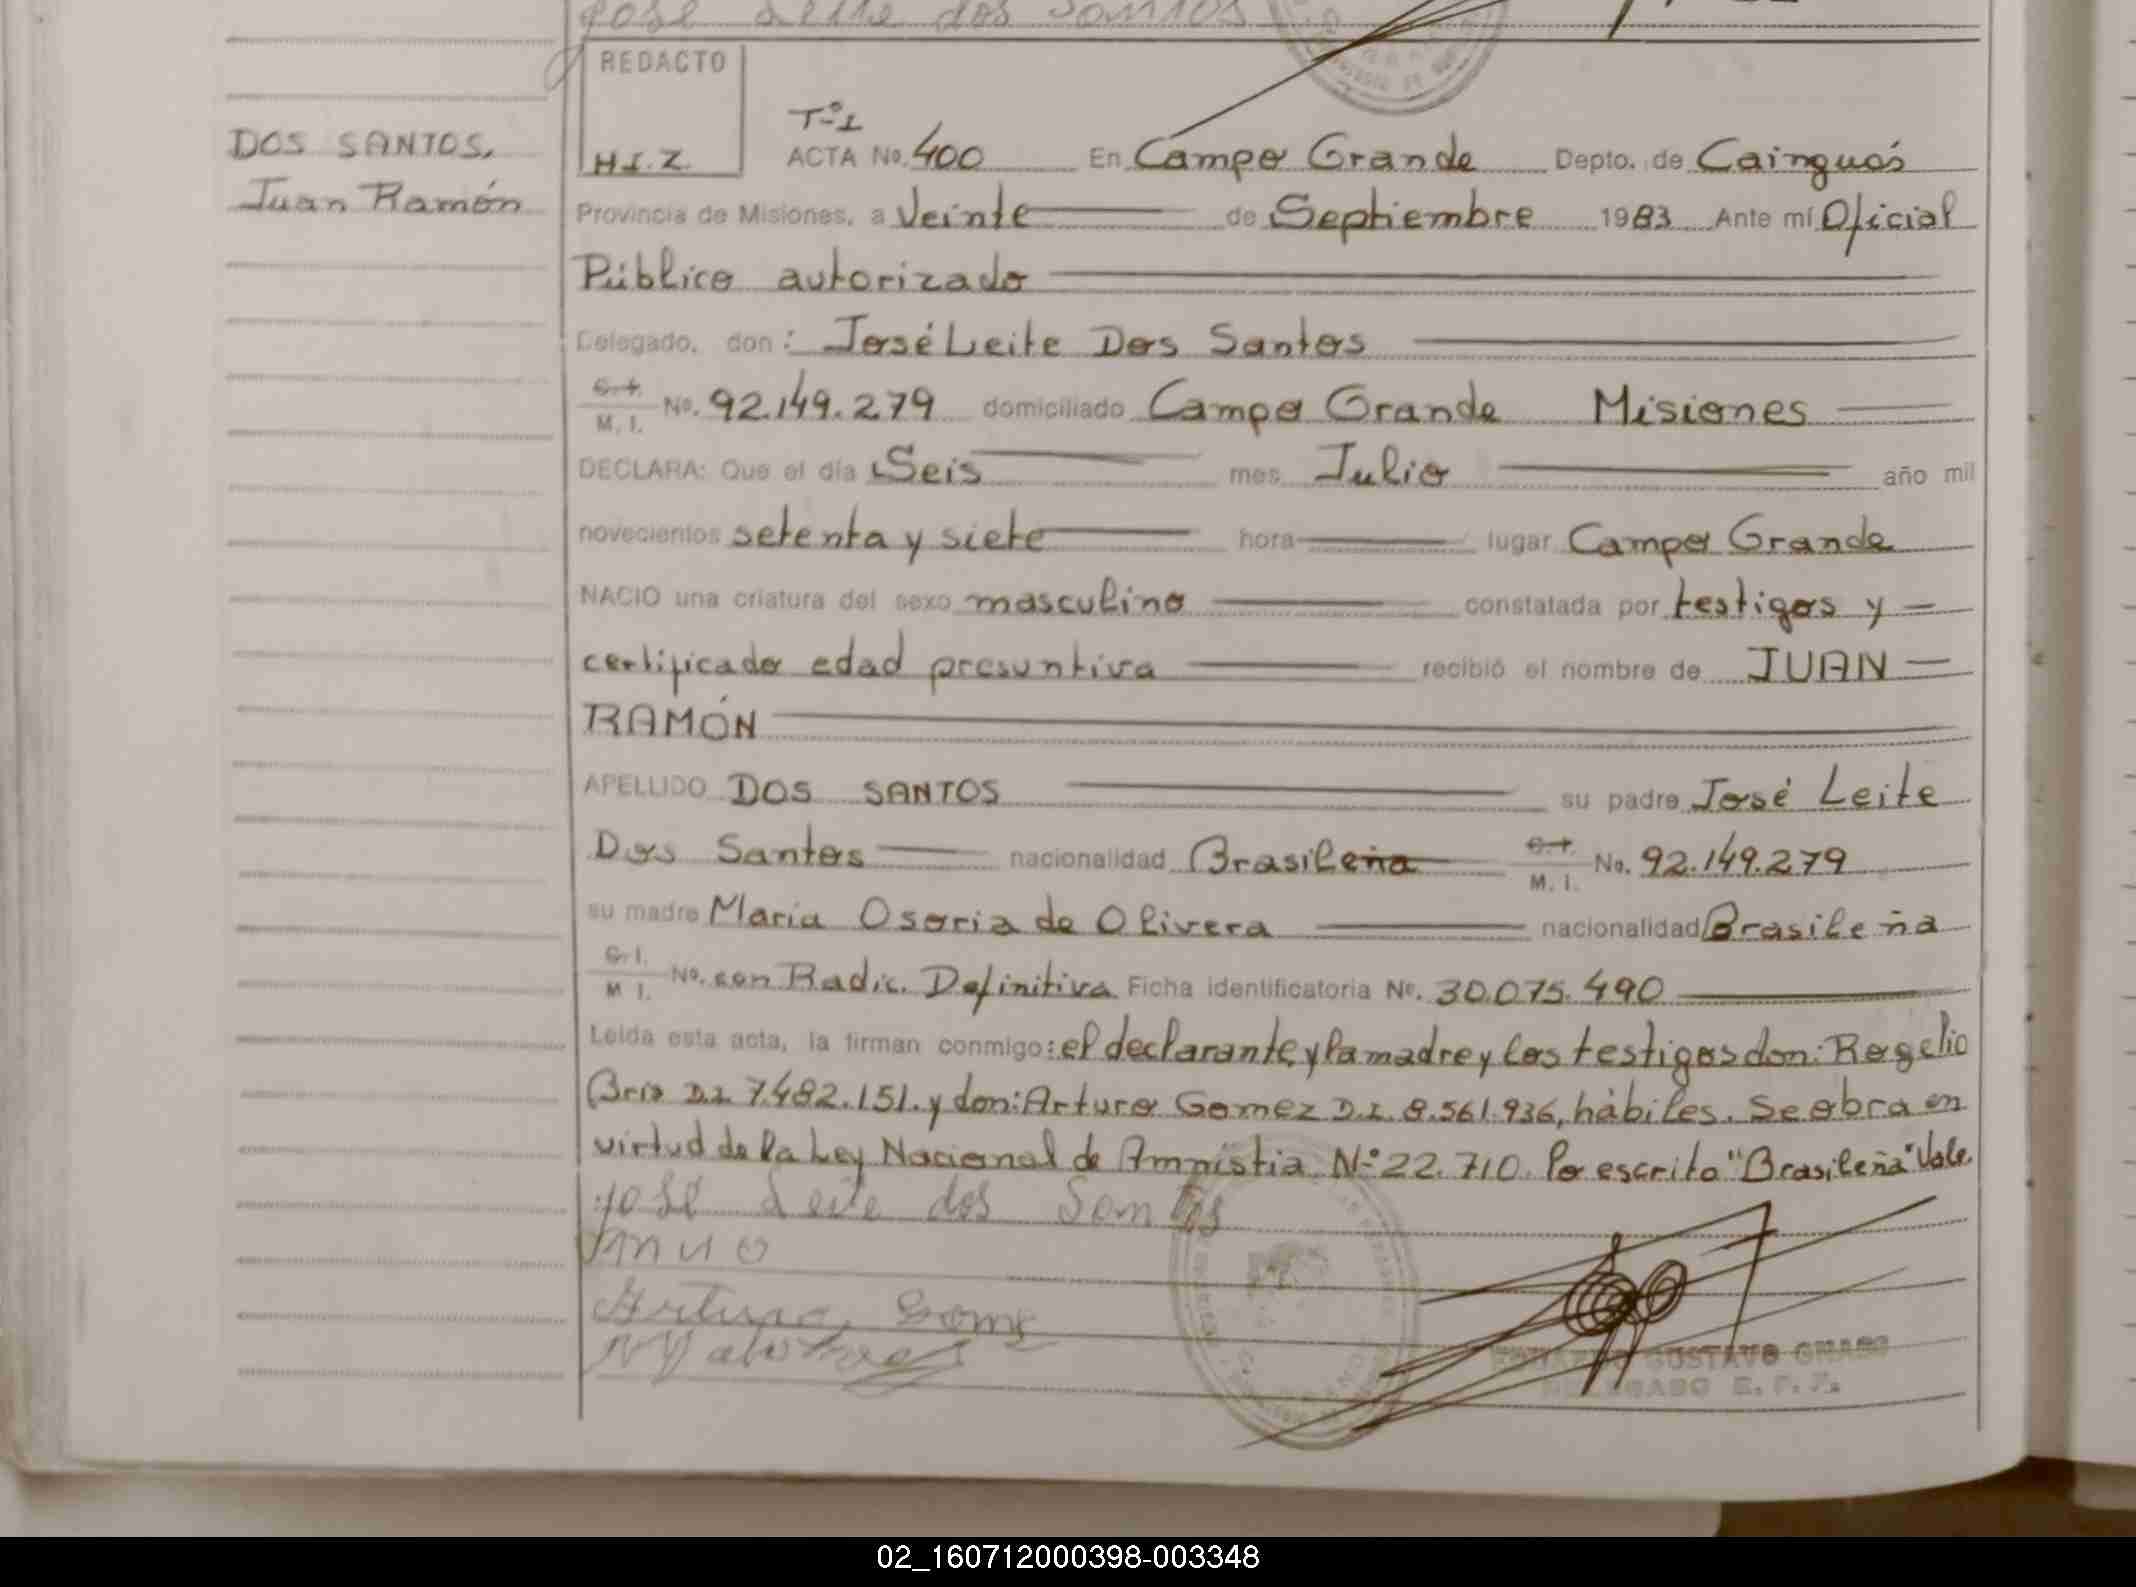 José Leite dos Santos
REDACTO
H.I.Z.
DOS SANTOS,
Juan Ramón
Tº1
ACTA No. 400 En Campo Grande Depto. de Cainguás
Provincia de Misiones, a Veinte de Septiembre 1983 Ante mí Oficial
Público autorizado
Delegado, don: José Leite Dos Santos
C.I. M.I. No. 92.149.279 domiciliado Campo Grande Misiones
DECLARA: Que el día Seis mes Julio año mil
novecientos setenta y siete hora lugar Campo Grande
NACIO una criatura del sexo masculino constatada por testigos y
certificado edad presuntiva recibió el nombre de JUAN
RAMÓN
APELLIDO DOS SANTOS su padre José Leite
Dos Santos nacionalidad Brasileña C.I. M.I. No. 92.149.279
su madre María Osoria de Olivera nacionalidad Brasileña
C.I. M.I. No. con Radic. Definitiva Ficha identificatoria No. 30.075.490
Leída esta acta, la firman conmigo: el declarante y la madre y los testigos don: Rogelio
Brio D.I. 7.482.151. y don: Arturo Gomez D.I. 8.561.936, hábiles. Se obra en
virtud de la Ley Nacional de Amnistia Nº 22.710. Lo escrito "Brasileña" Vale.
José Leite dos Santos
Arturo Gomez
GUSTAVO
DELEGADO
02_160712000398-003348